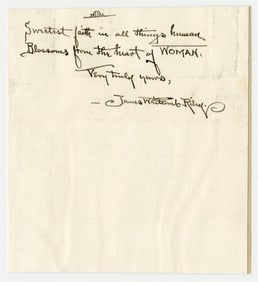 Sweetest faith in all things human
Blossoms from the heart of WOMAN.
Very truly yours,
— James Whitcomb Riley.